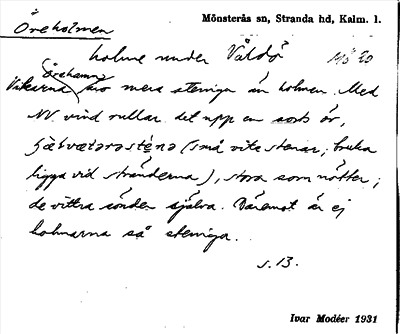 Öreholmen
Mönsterås sn, Stranda hd, Kalm. l.
holme under Våldö
Örehamn
Vikarna äro mera steniga än holmen. Med
NV. vind rullar det upp en sorts ör,
(små vita stenar; bruka
ligga vid stränderna), stora som nötter;
de vittra sönder själva. Däremot är ej
holmarna så steniga.
s. 13.
Ivar Modéer 1931